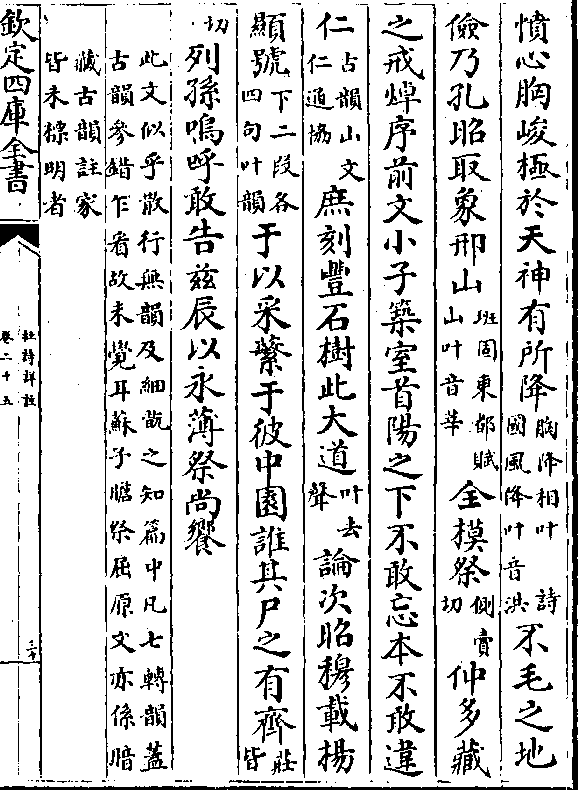 憤心胸峻極於天神有所降胸降相叶詩國風降叶音洪不毛之地
儉乃孔昭取象邢山班固東都賦山叶音華全模祭側賣切仲多藏
之戒焯序前文小子築室首陽之下不敢忘本不敢違
仁古韻山文仁通協庶刻豐石樹此大道叶去聲論次昭穆載揚
顯號下二段各四句叶韻于以采蘩于彼中園誰其尸之有齊莊皆切
列孫嗚呼敢告茲辰以永薄祭尚饗
此文似乎散行無韻及細翫之知篇中凡七轉韻蓋
古韻參錯乍看故未覺耳蘇子瞻祭屈原文亦係暗
藏古韻註家
皆未標明者
欽定四庫全書
杜詩詳註
卷二十五
三十